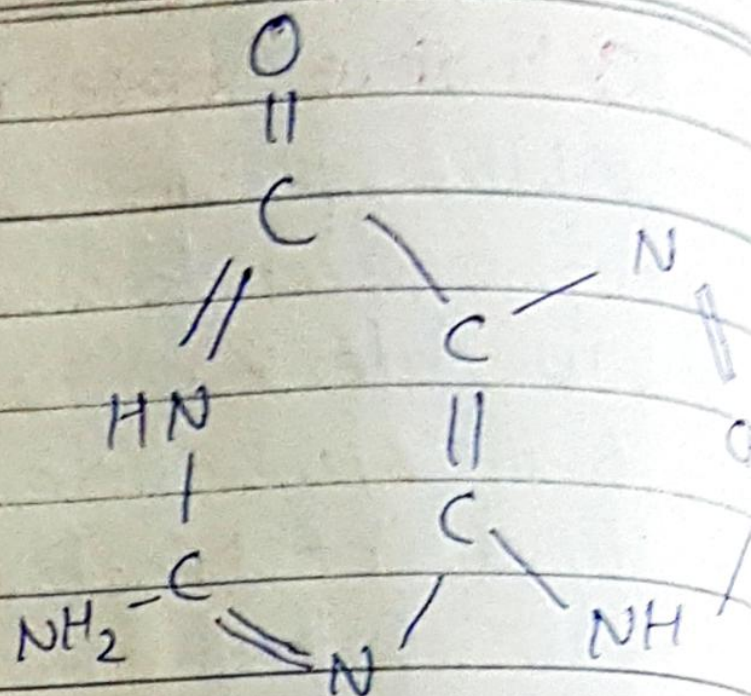 O
C
N
C
HN
C
C
NH₂
N
NH